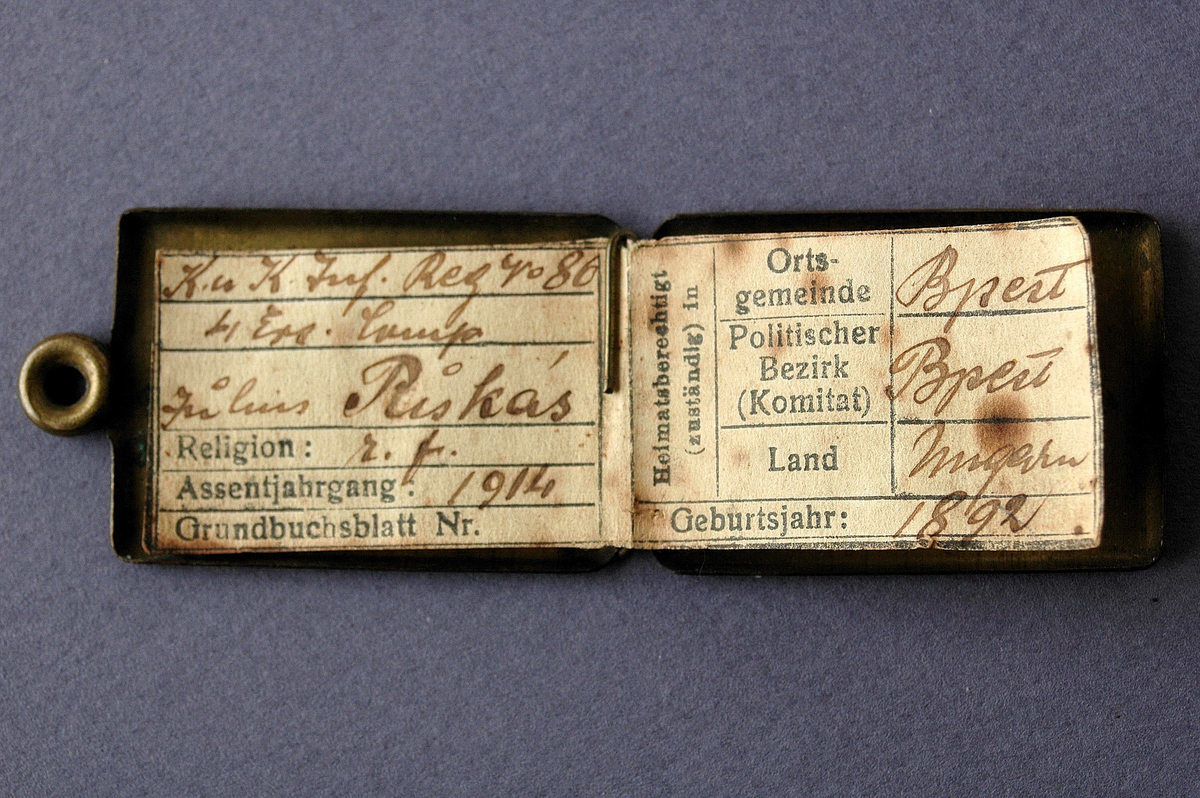 K. u K. Inf. Reg No 86
4 Ers. Comp
Julius Riskás
Religion: r. k.
Assentjahrgang: 1914
Grundbuchsblatt Nr.
Heimatsberechtigt
(zuständig) in
Orts-
gemeinde Bpest
Politischer
Bezirk
(Komitat) Bpest
Land Ungarn
Geburtsjahr: 1892